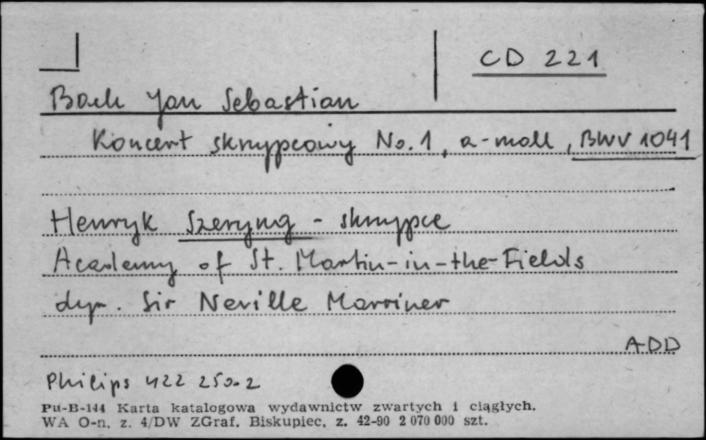 CD 221
Bach Jan Sebastian
Koncert skrzypcowy No.1, a-moll, BWV 1041
Henryk Szeryng - skrzypce
Academy of St. Martin-in-the-Fields
dyr. Sir Neville Marriner
ADD
Philips 422 250-2
Pu-B-144 Karta katalogowa wydawnictw zwartych i ciągłych.
WA O-n, z. 4/DW ZGraf. Biskupiec, z. 42-90 2 070 000 szt.